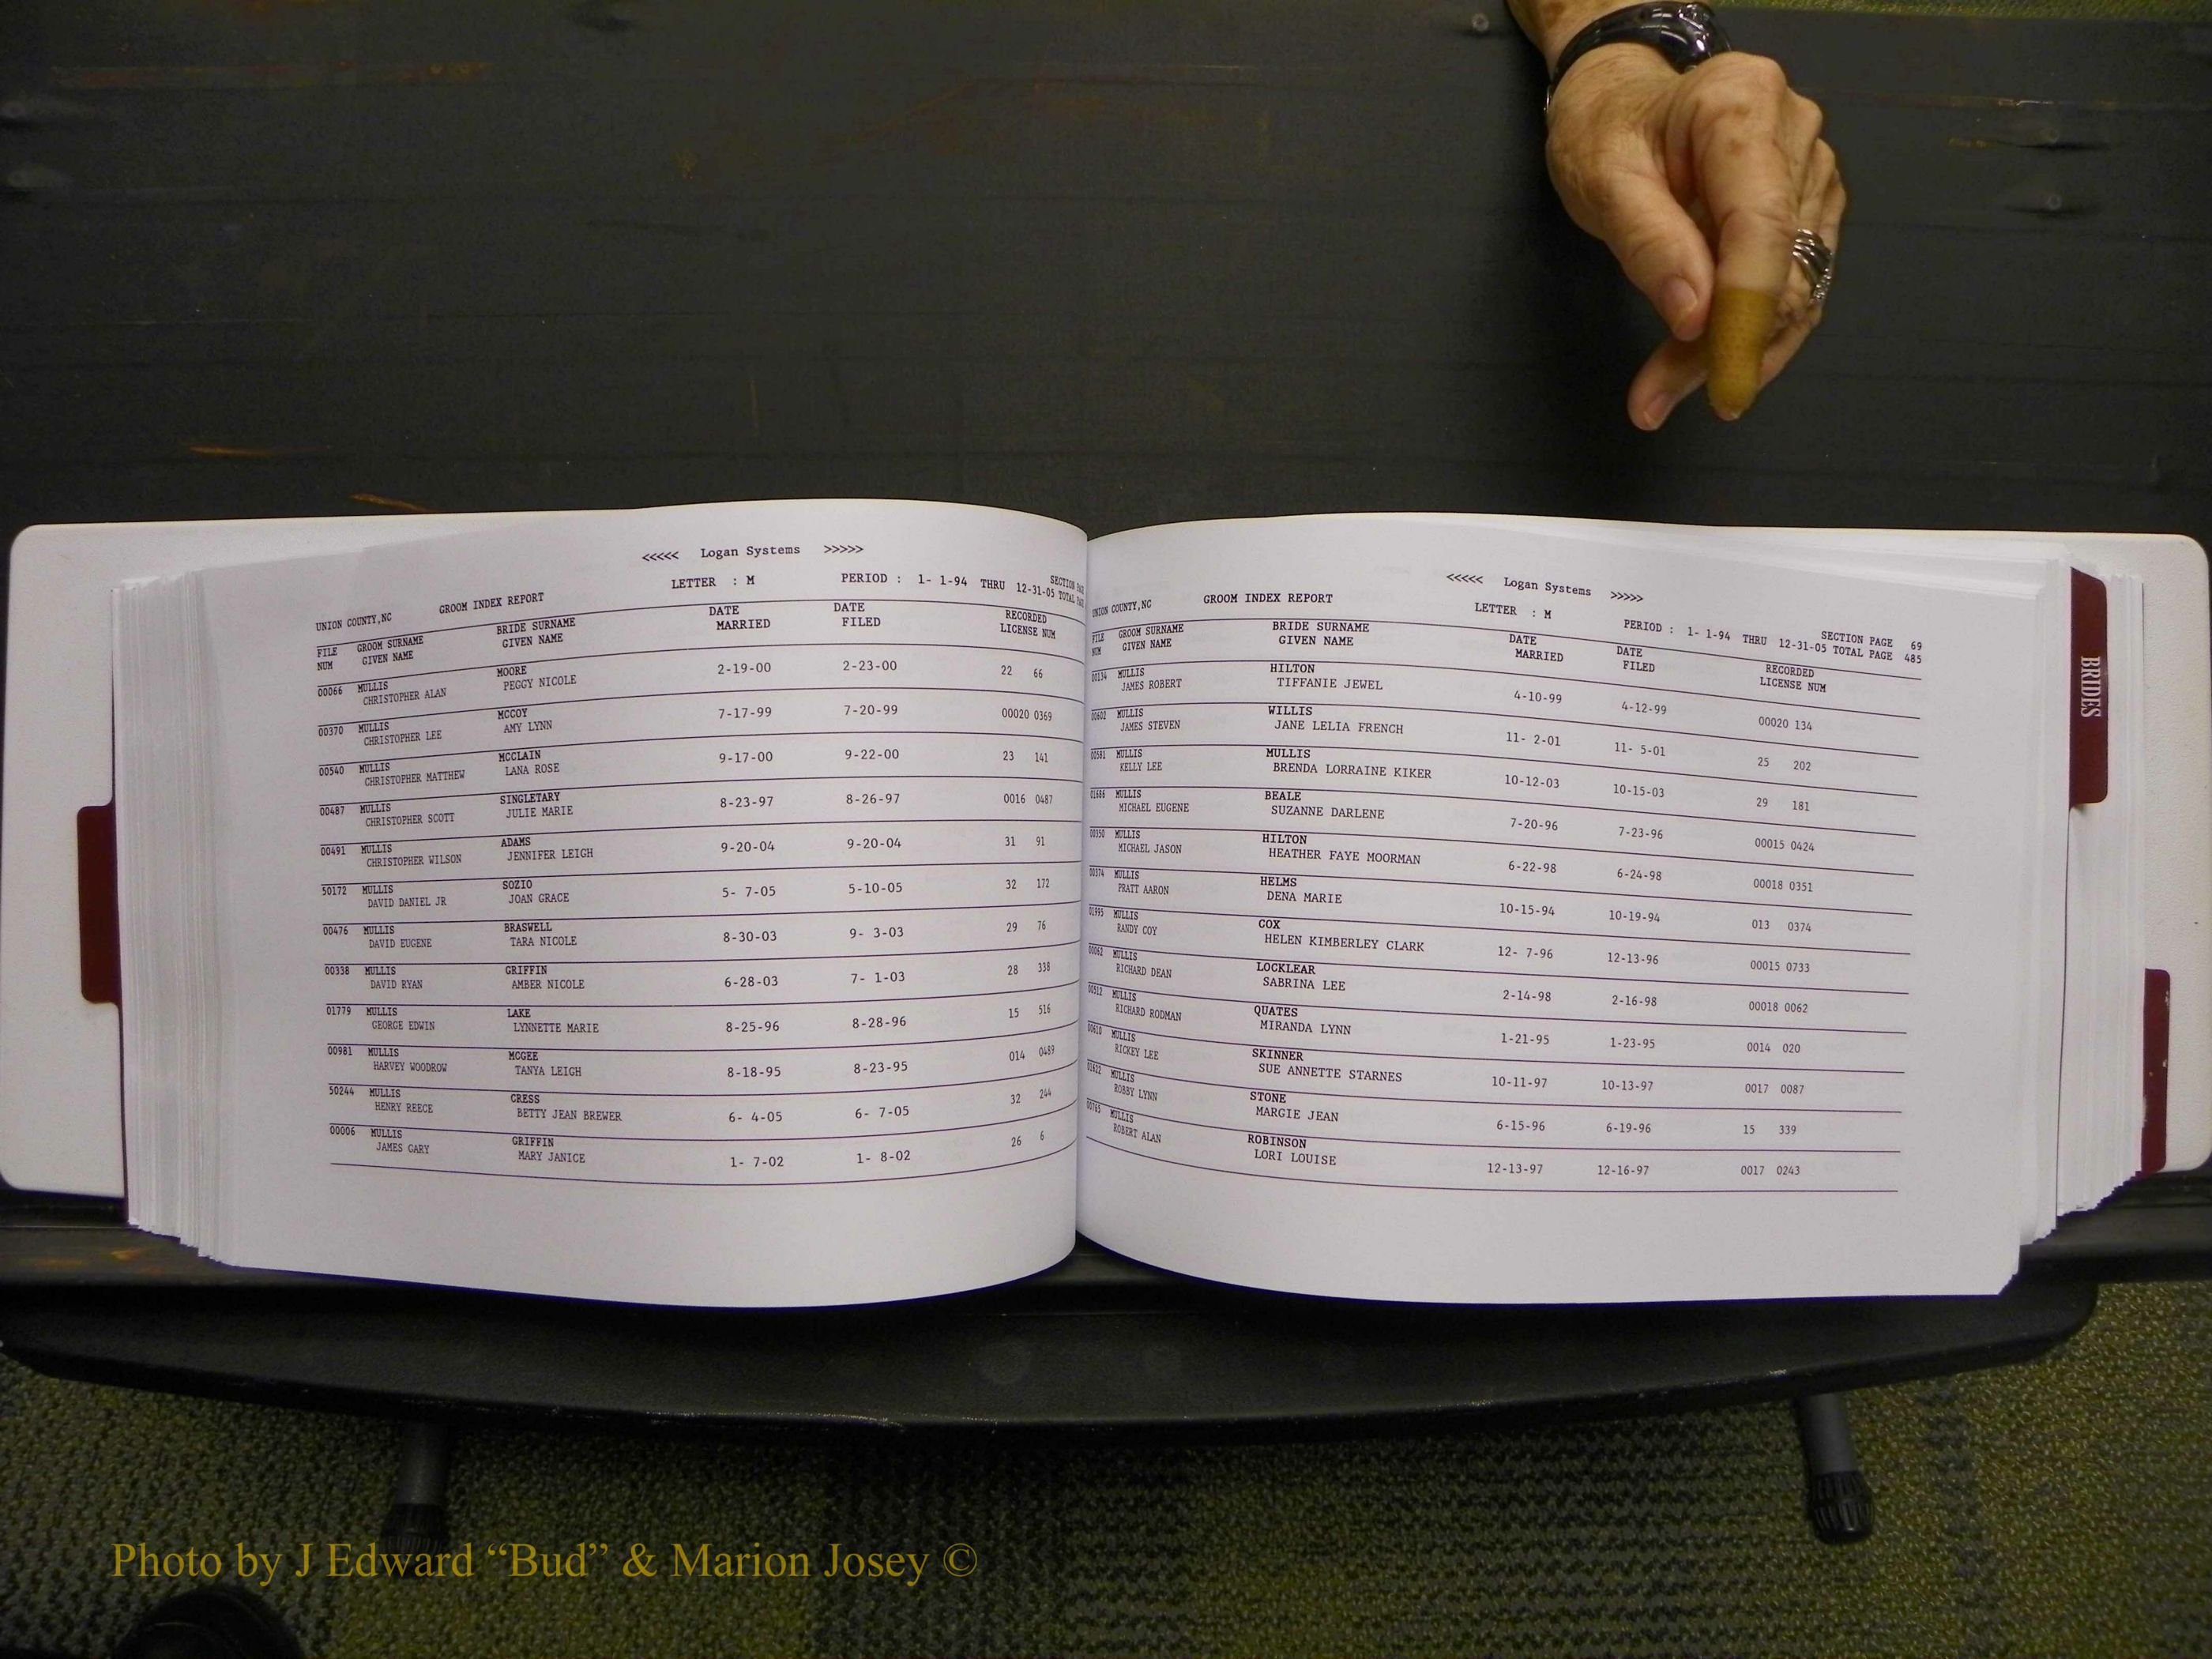 <<<<< Logan Systems >>>>>
UNION COUNTY,NC GROOM INDEX REPORT LETTER : M PERIOD : 1- 1-94 THRU 12-31-05 SECTION TOTAL
FILE GROOM SURNAME BRIDE SURNAME DATE DATE RECORDED
NUM GIVEN NAME GIVEN NAME MARRIED FILED LICENSE NUM
00066 MULLIS MOORE 2-19-00 2-23-00 22 66
CHRISTOPHER ALAN PEGGY NICOLE
00370 MULLIS MCCOY 7-17-99 7-20-99 00020 0369
CHRISTOPHER LEE AMY LYNN
00540 MULLIS MCCLAIN 9-17-00 9-22-00 23 141
CHRISTOPHER MATTHEW LANA ROSE
00487 MULLIS SINGLETARY 8-23-97 8-26-97 0016 0487
CHRISTOPHER SCOTT JULIE MARIE
00491 MULLIS ADAMS 9-20-04 9-20-04 31 91
CHRISTOPHER WILSON JENNIFER LEIGH
50172 MULLIS SOZIO 5- 7-05 5-10-05 32 172
DAVID DANIEL JR JOAN GRACE
00476 MULLIS BRASWELL 8-30-03 9- 3-03 29 76
DAVID EUGENE TARA NICOLE
00338 MULLIS GRIFFIN 6-28-03 7- 1-03 28 338
DAVID RYAN AMBER NICOLE
01779 MULLIS LAKE 8-25-96 8-28-96 15 516
GEORGE EDWIN LYNNETTE MARIE
00981 MULLIS MCGEE 8-18-95 8-23-95 014 0489
HARVEY WOODROW TANYA LEIGH
50244 MULLIS CRESS 6- 4-05 6- 7-05 32 244
HENRY REECE BETTY JEAN BREWER
00006 MULLIS GRIFFIN 1- 7-02 1- 8-02 26 6
JAMES GARY MARY JANICE
<<<<< Logan Systems >>>>>
UNION COUNTY,NC GROOM INDEX REPORT LETTER : M SECTION PAGE 69
PERIOD : 1- 1-94 THRU 12-31-05 TOTAL PAGE 485
FILE GROOM SURNAME BRIDE SURNAME DATE DATE RECORDED
NUM GIVEN NAME GIVEN NAME MARRIED FILED LICENSE NUM
00134 MULLIS HILTON 4-10-99 4-12-99 00020 134
JAMES ROBERT TIFFANIE JEWEL
00602 MULLIS WILLIS 11- 2-01 11- 5-01 25 202
JAMES STEVEN JANE LELIA FRENCH
00581 MULLIS MULLIS 10-12-03 10-15-03 29 181
KELLY LEE BRENDA LORRAINE KIKER
01686 MULLIS BEALE 7-20-96 7-23-96 00015 0424
MICHAEL EUGENE SUZANNE DARLENE
00350 MULLIS HILTON 6-22-98 6-24-98 00018 0351
MICHAEL JASON HEATHER FAYE MOORMAN
00374 MULLIS HELMS 10-15-94 10-19-94 013 0374
PRATT AARON DENA MARIE
01995 MULLIS COX 12- 7-96 12-13-96 00015 0733
RANDY COY HELEN KIMBERLEY CLARK
00062 MULLIS LOCKLEAR 2-14-98 2-16-98 00018 0062
RICHARD DEAN SABRINA LEE
00512 MULLIS QUATES 1-21-95 1-23-95 0014 020
RICHARD RODMAN MIRANDA LYNN
00610 MULLIS SKINNER 10-11-97 10-13-97 0017 0087
RICKEY LEE SUE ANNETTE STARNES
01622 MULLIS STONE 6-15-96 6-19-96 15 339
ROBBY LYNN MARGIE JEAN
00765 MULLIS ROBINSON 12-13-97 12-16-97 0017 0243
ROBERT ALAN LORI LOUISE
BRIDES
Photo by J Edward “Bud” & Marion Josey ©